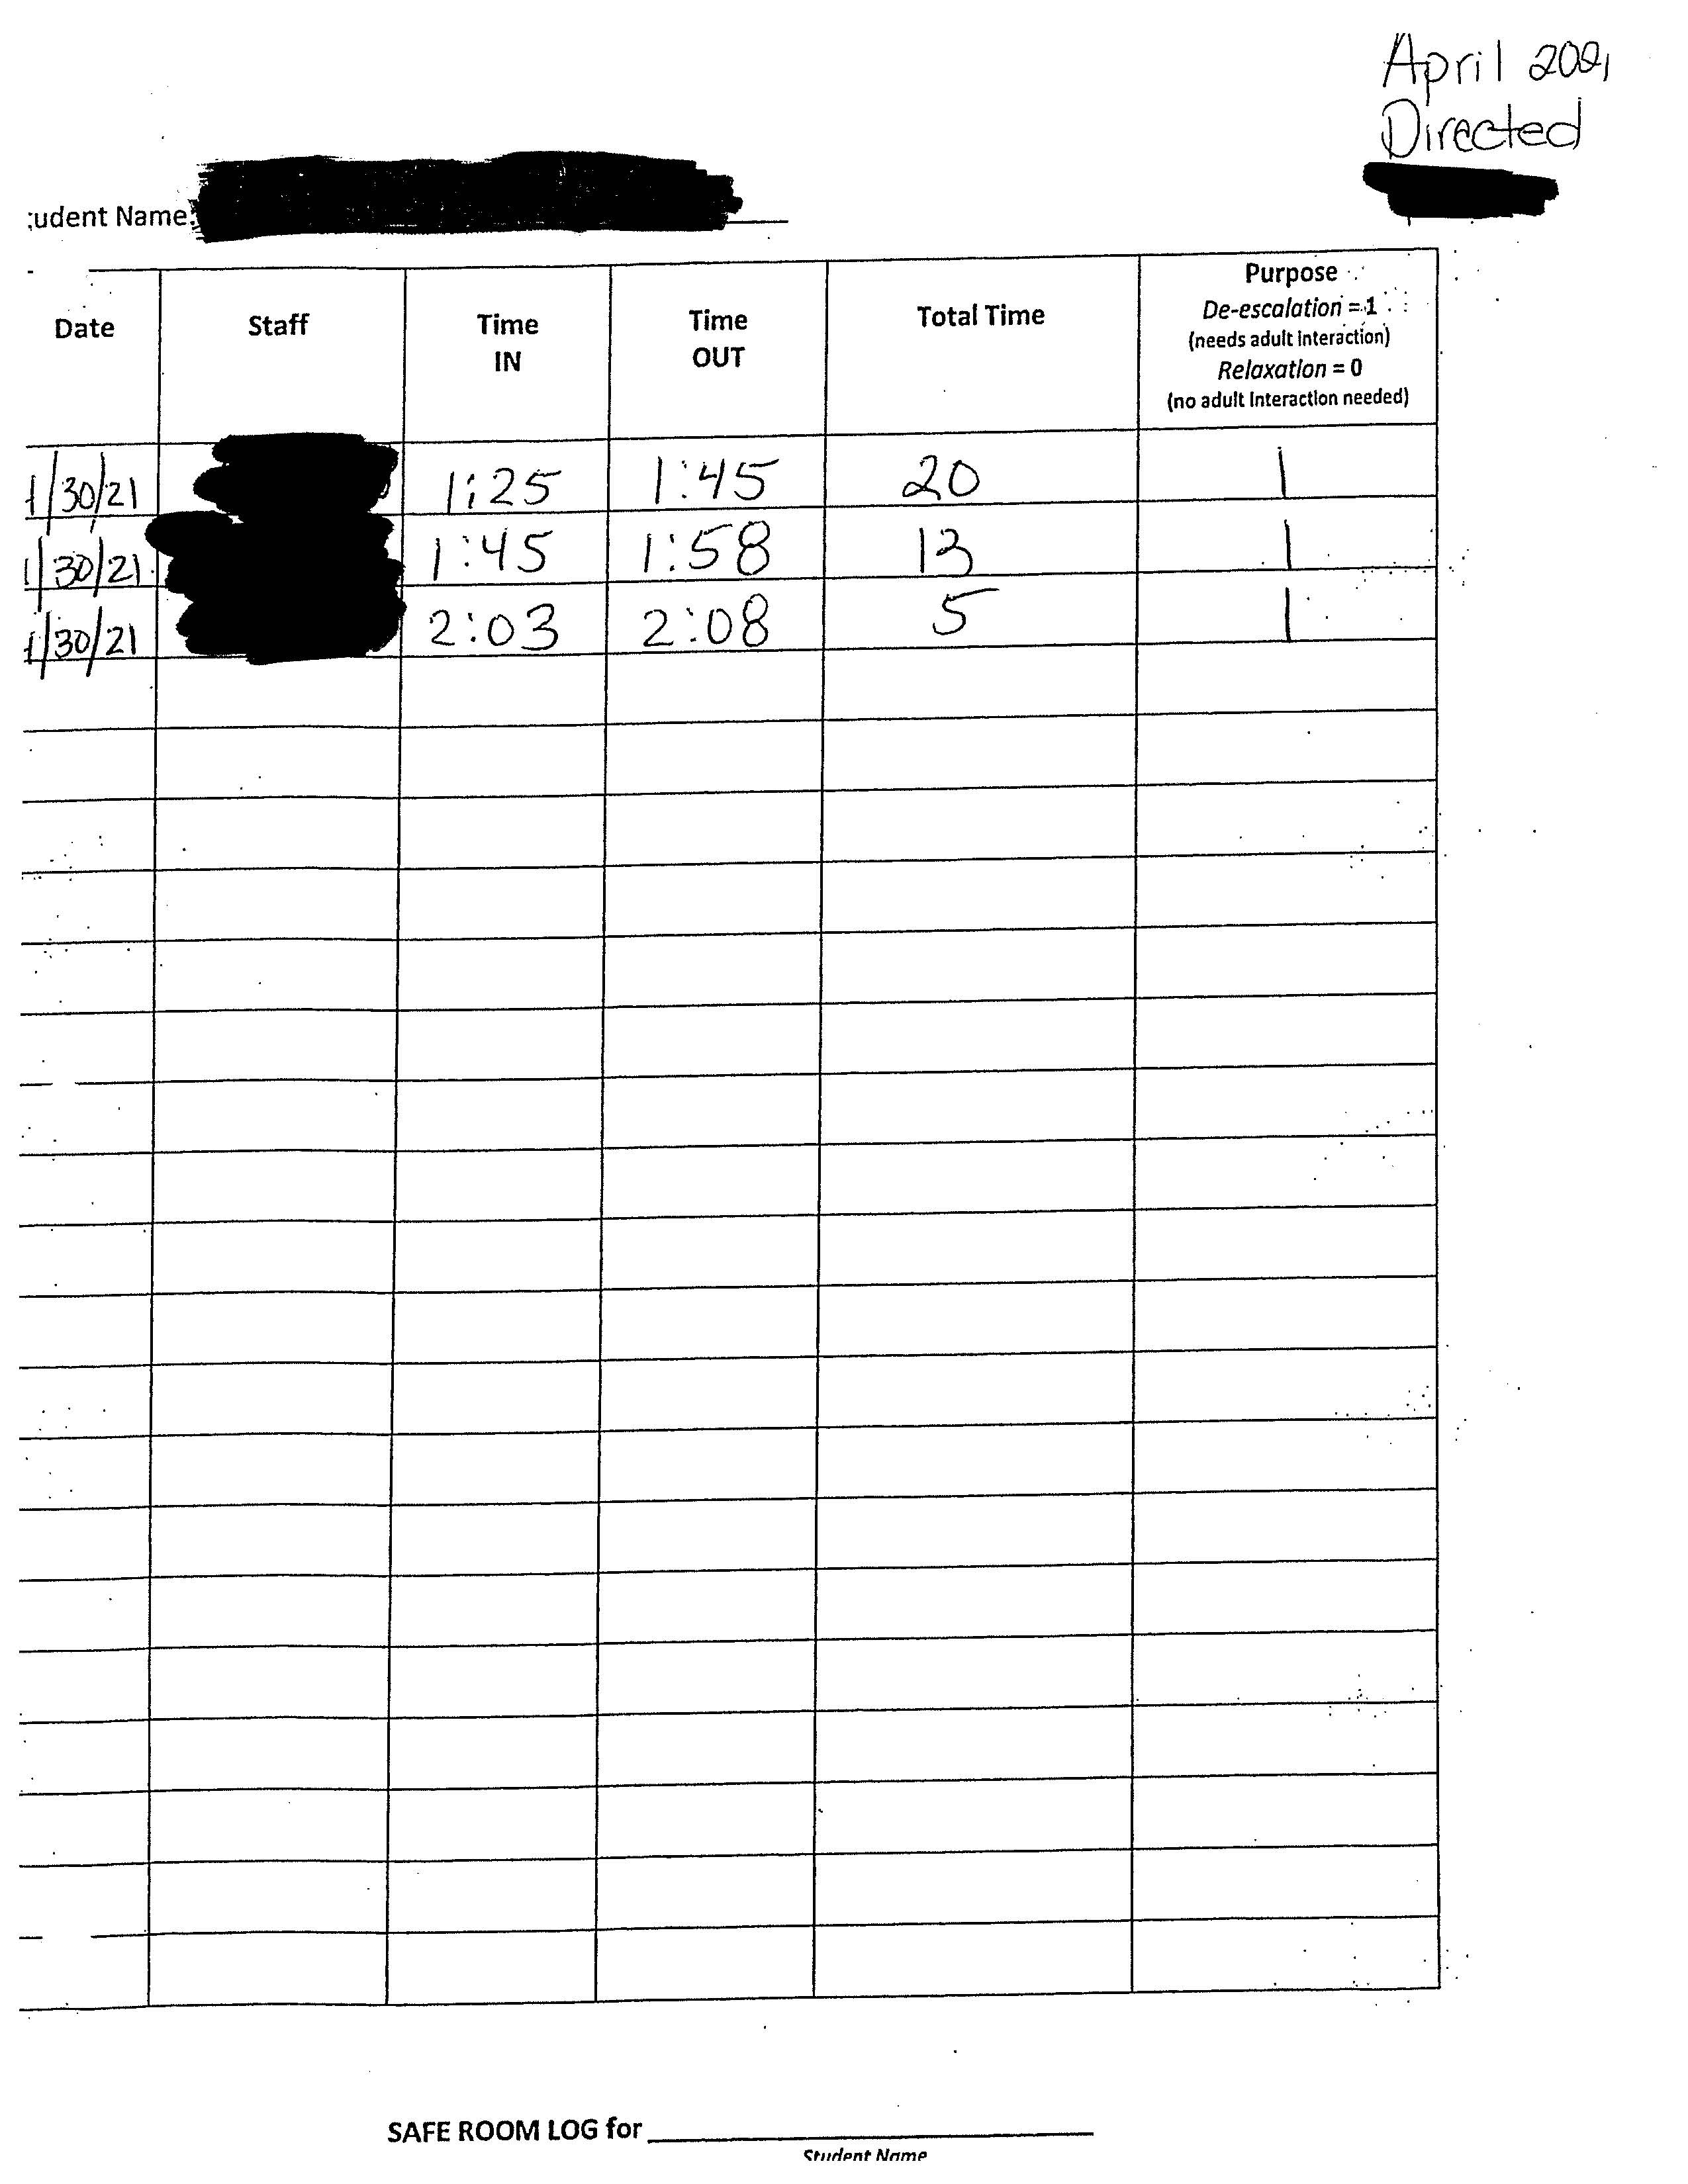 April 2021
Directed
udent Name:
Date Staff Time IN Time OUT Total Time Purpose
De-escalation = 1
(needs adult interaction)
Relaxation = 0
(no adult interaction needed)
4/30/21 1:25 1:45 20 1
4/30/21 1:45 1:58 13 1
4/30/21 2:03 2:08 5 1
SAFE ROOM LOG for
Student Name